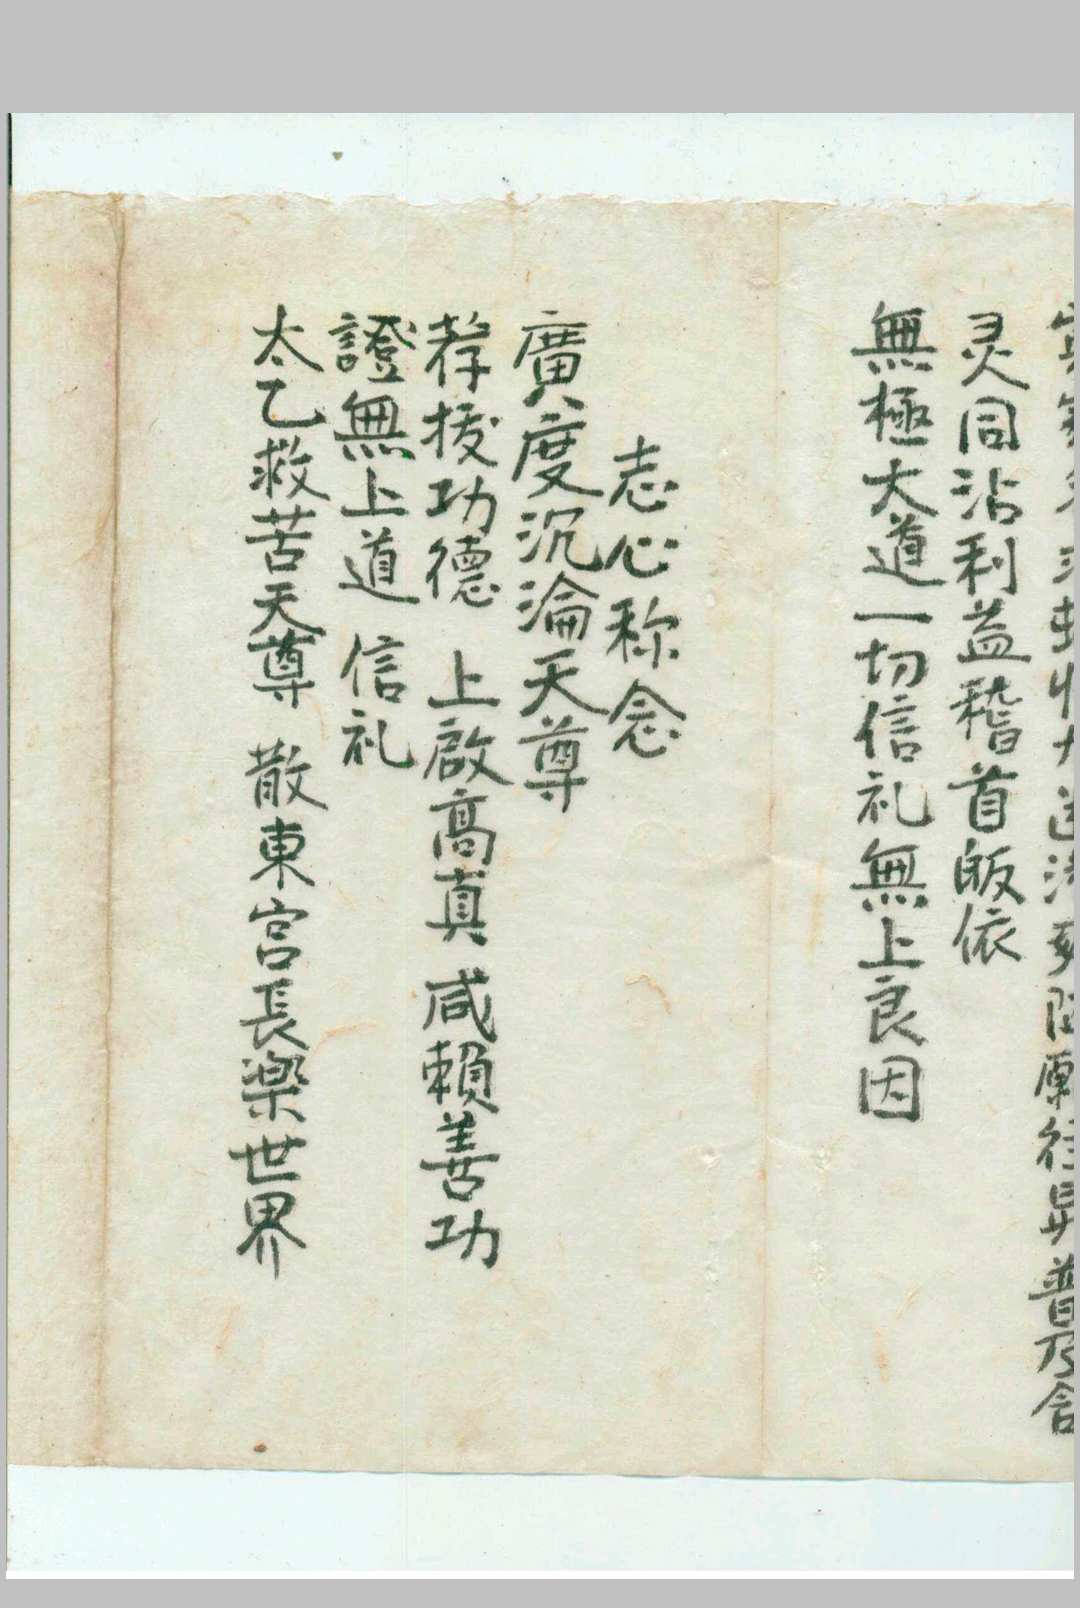 願往昇普及含
灵同沾利益稽首皈依
無極大道一切信礼無上良因
志心称念
廣度沉淪天尊
荐拔功德 上啟高真 咸賴善功
證無上道 信礼
太乙救苦天尊 散東宮長楽世界